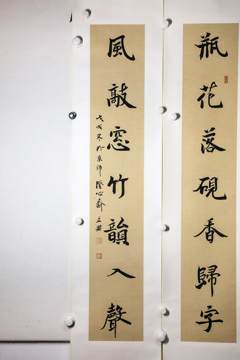 瓶花落硯香歸字
風敲窓竹韻入聲